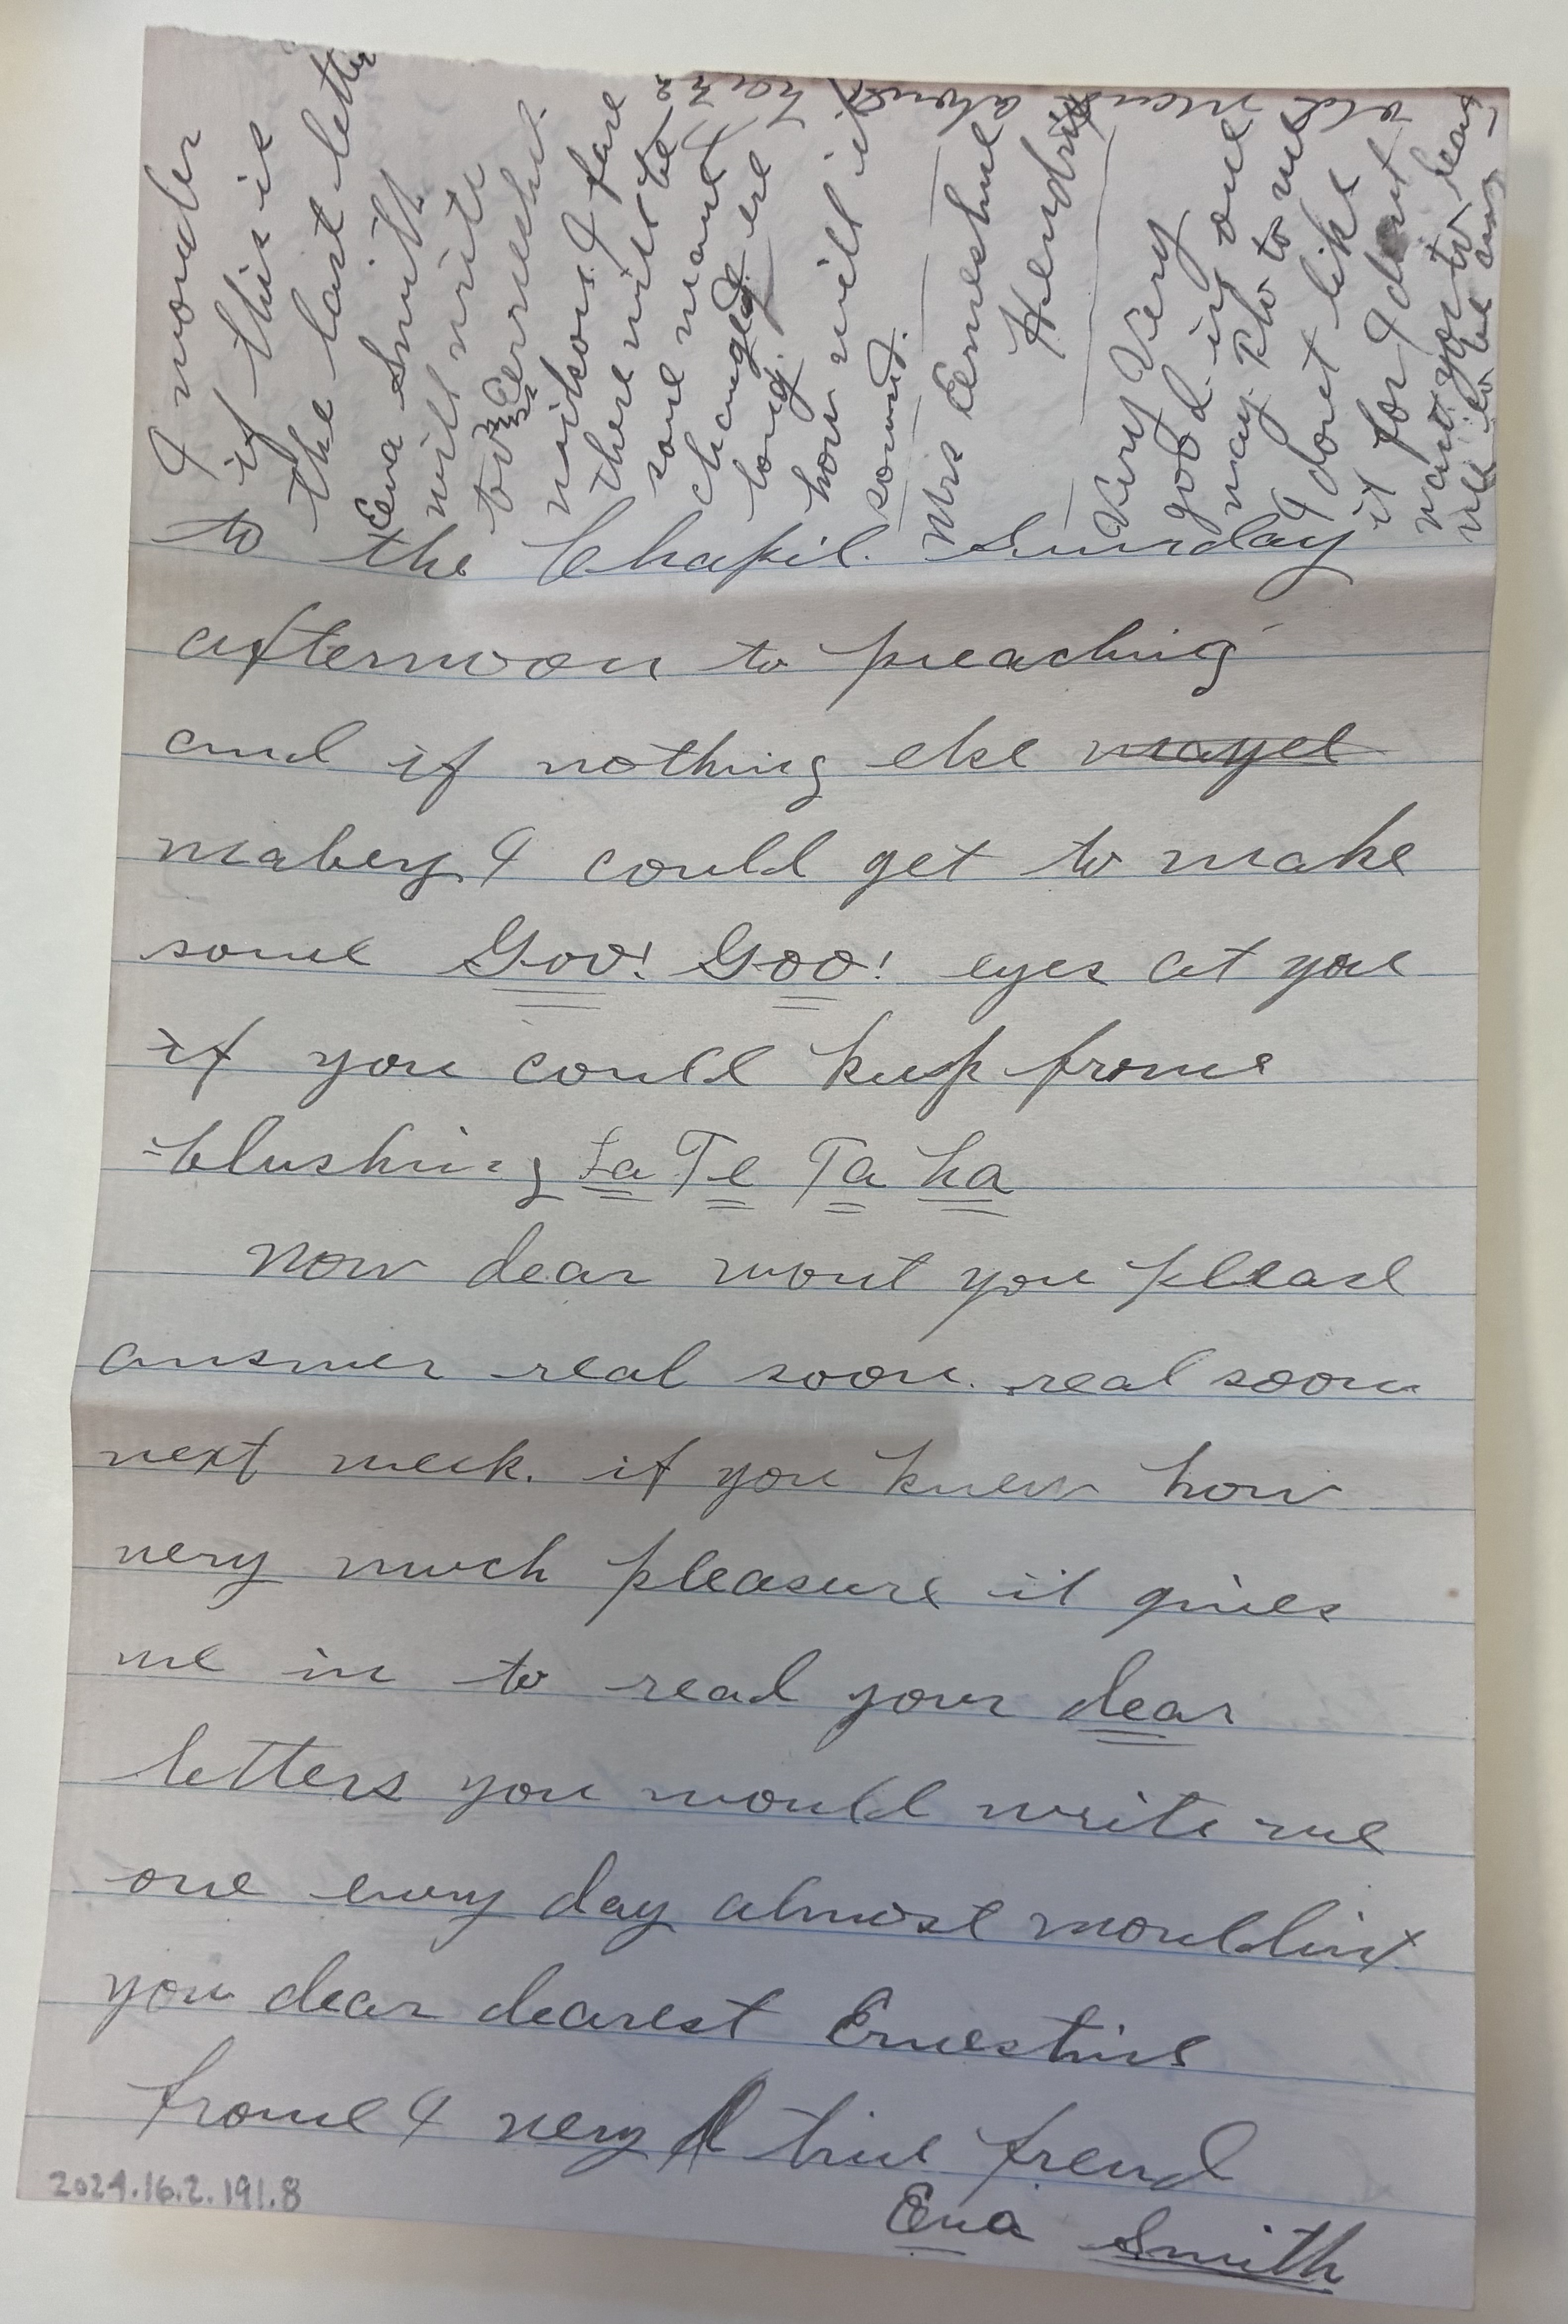 to the Chapil. Sunday
afternoon to preaching
and if nothing else mayel
mabey I could get to make
some Goo! Goo! eyes at you
if you could keep frome
blushing ta Te Ta ha
Now dear wont you pleas
answer real soon. real soon
next week. if you knew how
very much pleasure it gives
me in to read your dear
letters you would write me
one every day almost wouldint
you dear dearest Ernestine
frome I very true frend
Eva Smith
I wonder
if this is
the last letter
Eva Smith
will write
to Ernestine.
Wilson. I fare
there will be
some name
changed ere
long.
how will it
sound.
Mrs Ernestine
Hendrix
Very Very
good in one
way. But to me
I dont like
it for I dont
want you to leav
me
2024.16.2.191.8